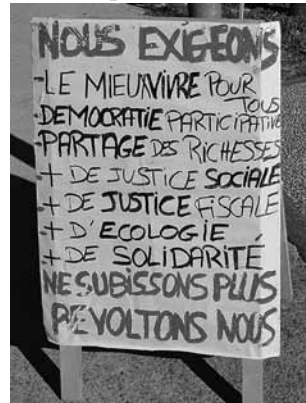 NOUS EXIGEONS
-LE MIEUX VIVRE POUR
TOUS
-DEMOCRATIE PARTICIPATIVE
-PARTAGE DES RICHESSES
+ DE JUSTICE SOCIALE
+ DE JUSTICE FISCALE
+ D'ECOLOGIE
+ DE SOLIDARITÉ
NE SUBISSONS PLUS
REVOLTONS NOUS